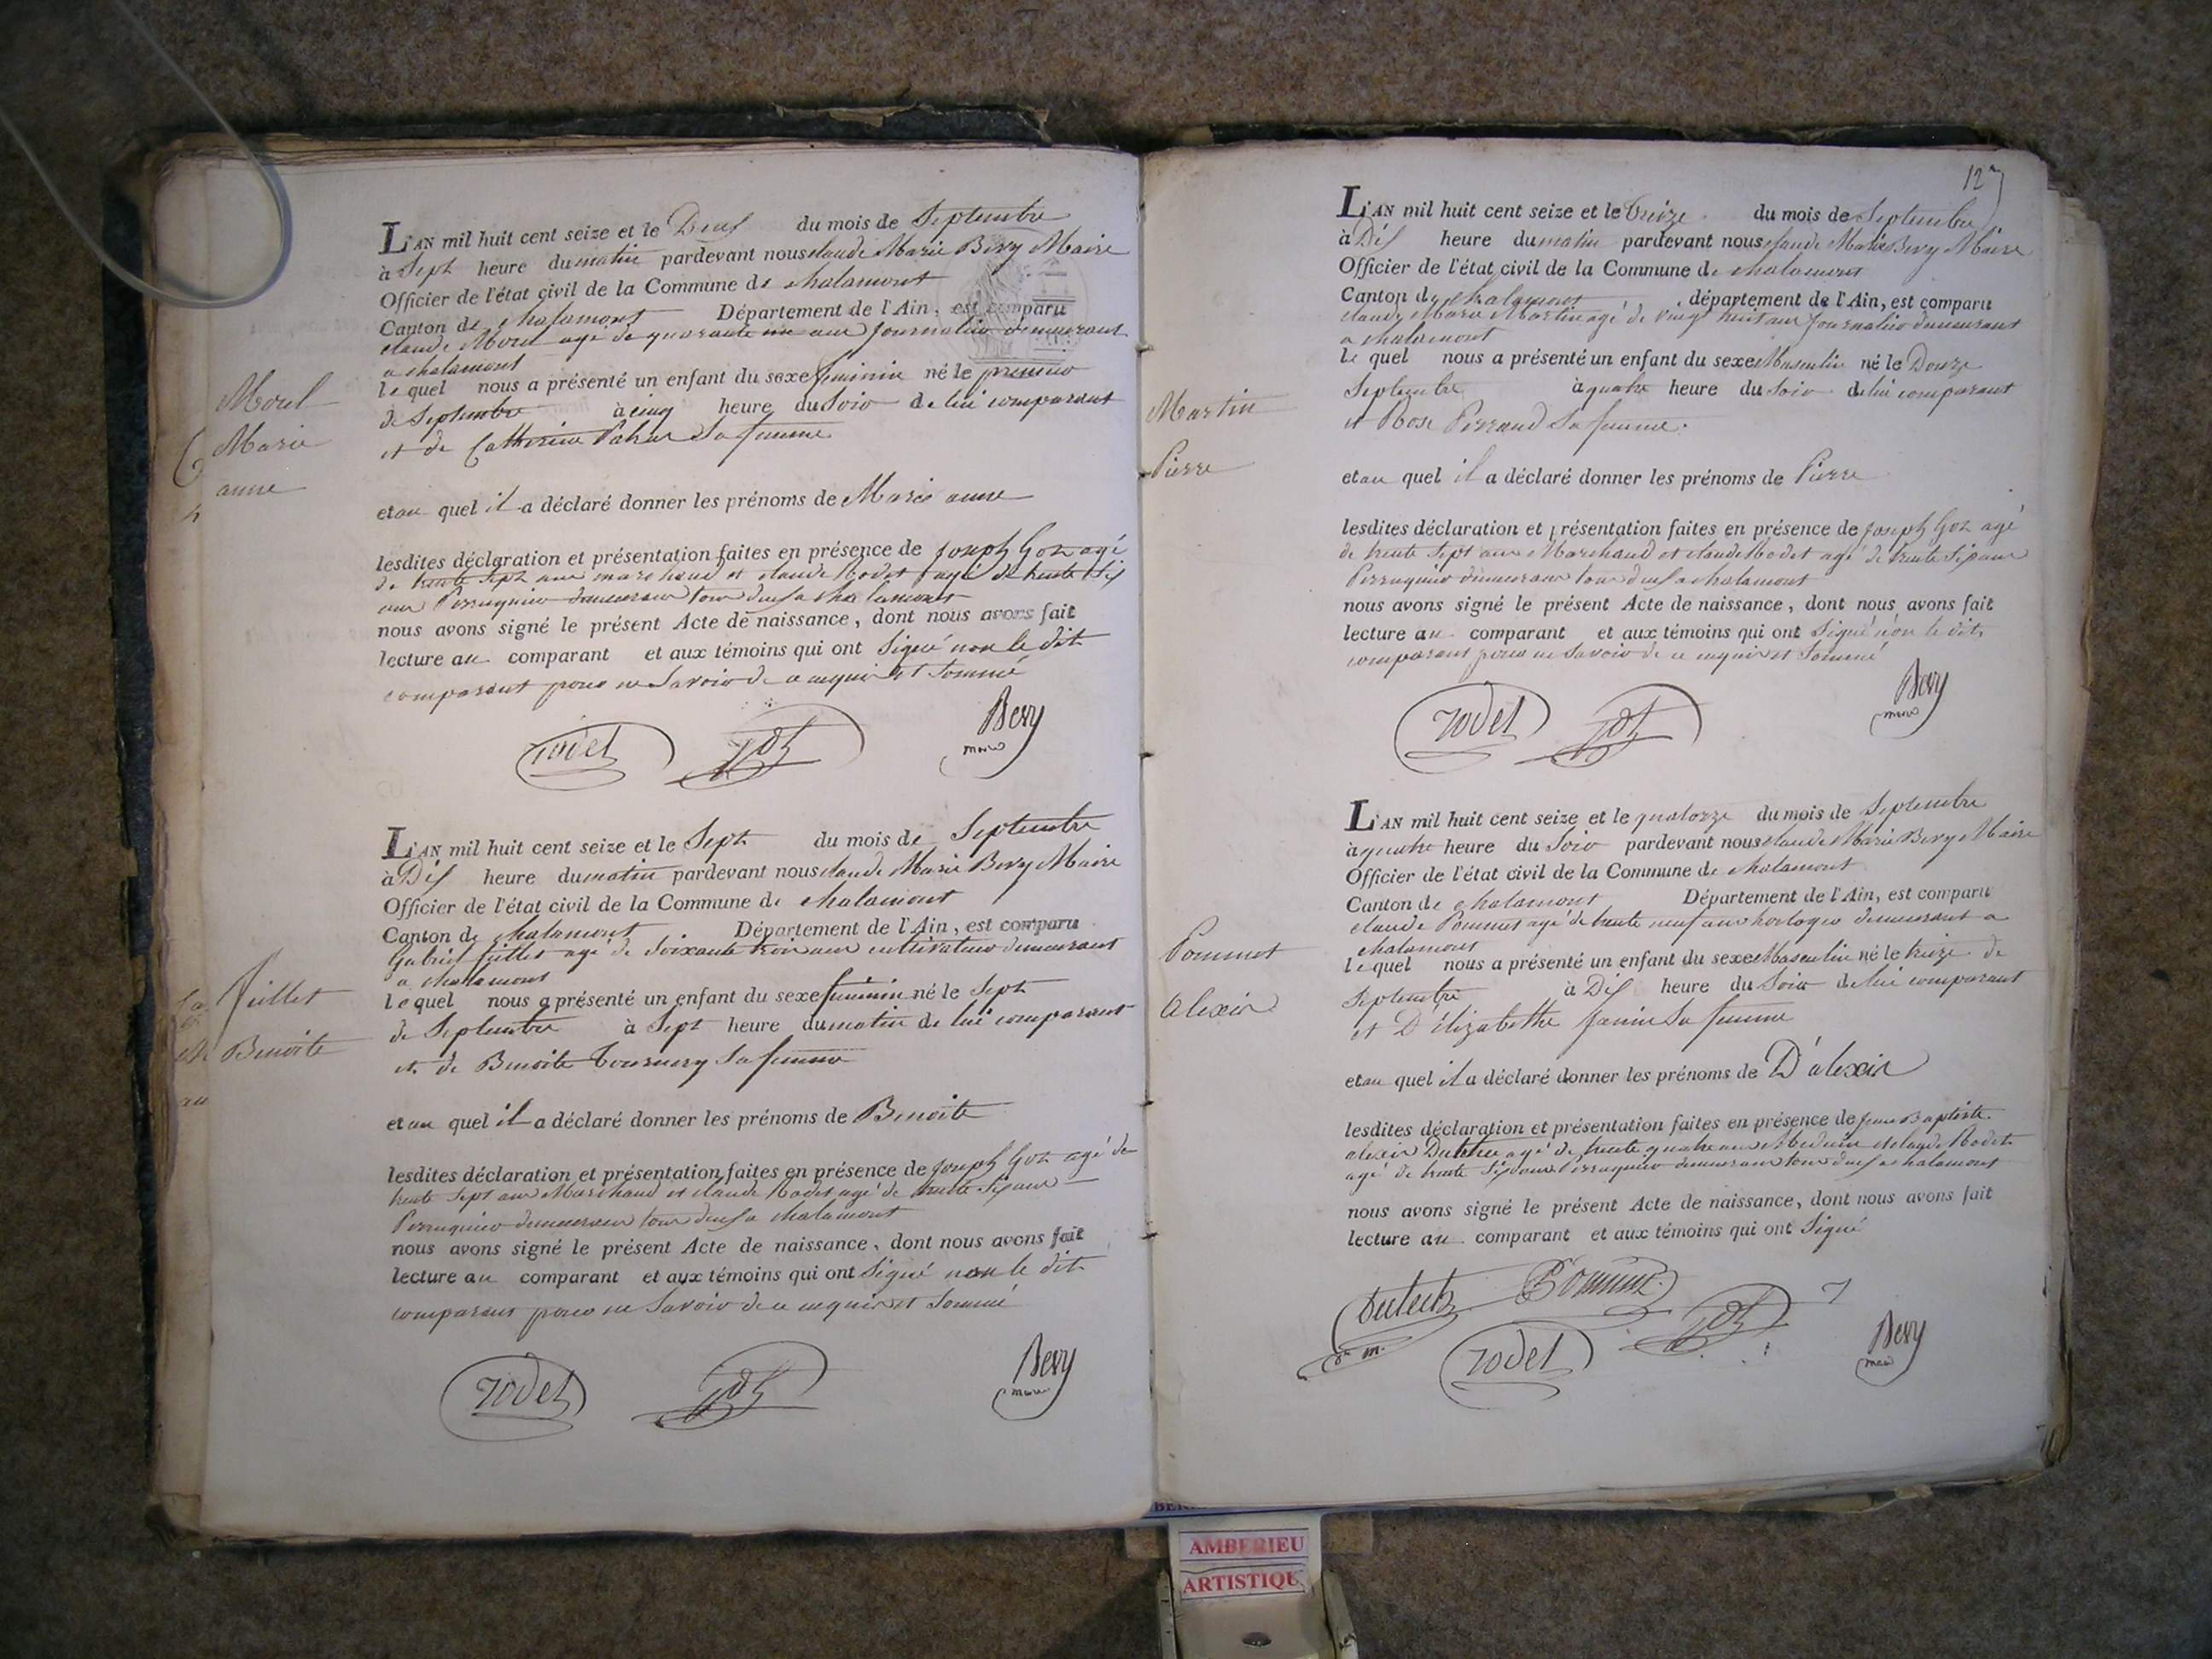 Morel
Marie
anne
L'AN mil huit cent seize et le Deux du mois de Septembre
à Sept heure du matin pardevant nous claude Marie Bevy Maire
Officier de l'état civil de la Commune de chalamont
Canton de chalamont Département de l'Ain, est comparu
claude Morel agé de quarante un ans Journalier demeurant
a chalamont
le quel nous a présenté un enfant du sexe feminin né le premier
de Septembre à cinq heure du Soir de lui comparant
et de Catherine sa femme
et au quel il a déclaré donner les prénoms de Marie anne
lesdites déclaration et présentation faites en présence de Joseph Goz agé
de trente Sept ans marchand et claude Rodet agé de trente Six
ans Perruquier demeurans tous deux a chalamont
nous avons signé le présent Acte de naissance, dont nous avons fait
lecture au comparant et aux témoins qui ont Signé non le dit
comparant pour ne Savoir de ce enquis et Sommé
rodet Goz Bevy
maire
Juillet
Benoite
L'AN mil huit cent seize et le Sept du mois de Septembre
à Dix heure du matin pardevant nous claude Marie Bevy Maire
Officier de l'état civil de la Commune de chalamont
Canton de chalamont Département de l'Ain, est comparu
Gabriel Juillet agé de Soixante trois ans cultivateur demeurant
a chalamont
le quel nous a présenté un enfant du sexe feminin né le Sept
de Septembre à Sept heure du matin de lui comparant
et de Benoite Tournery Sa femme
et au quel il a déclaré donner les prénoms de Benoite
lesdites déclaration et présentation faites en présence de Joseph Goz agé de
trente Sept ans Marchand et claude Rodet agé de trente Six ans
Perruquier demeurans tous deux a chalamont
nous avons signé le présent Acte de naissance, dont nous avons fait
lecture au comparant et aux témoins qui ont Signé non le dit
comparant pour ne Savoir de ce enquis et Sommé
rodet Goz Bevy
maire
127
Martin
Pierre
L'AN mil huit cent seize et le treize du mois de Septembre
à Dix heure du matin pardevant nous claude Marie Bevy Maire
Officier de l'état civil de la Commune de chalamont
Canton de chalamont département de l'Ain, est comparu
claude Marie Martin agé de vingt huit ans Journalier demeurant
a chalamont
le quel nous a présenté un enfant du sexe Masculin né le Douze
Septembre à quatre heure du Soir de lui comparant
et Rose Perraud Sa femme.
et au quel il a déclaré donner les prénoms de Pierre
lesdites déclaration et présentation faites en présence de Joseph Goz agé
de trente Sept ans Marchand et claude Rodet agé de trente Six ans
Perruquier demeurans tous deux a chalamont
nous avons signé le présent Acte de naissance, dont nous avons fait
lecture au comparant et aux témoins qui ont Signé non le dit
comparant pour ne Savoir de ce enquis et Sommé
rodet Goz Bevy
maire
Pommet
alexis
L'AN mil huit cent seize et le quatorze du mois de Septembre
à quatre heure du Soir pardevant nous claude Marie Bevy Maire
Officier de l'état civil de la Commune de chalamont
Canton de chalamont Département de l'Ain, est comparu
claude Pommet agé de trente neuf ans horloger demeurant a
chalamont
le quel nous a présenté un enfant du sexe Masculin né le treize de
Septembre à Dix heure du Soir de lui comparant
et D'Elizabethe Janin Sa femme
et au quel il a déclaré donner les prénoms de D'alexis
lesdites déclaration et présentation faites en présence de Jean Baptiste
alexis agé de trente quatre ans Medecin et claude Rodet
agé de trente Six ans Perruquier demeurans tous deux a chalamont
nous avons signé le présent Acte de naissance, dont nous avons fait
lecture au comparant et aux témoins qui ont Signé
Pommet
rodet Goz Bevy
maire
AMBERIEU
ARTISTIQU